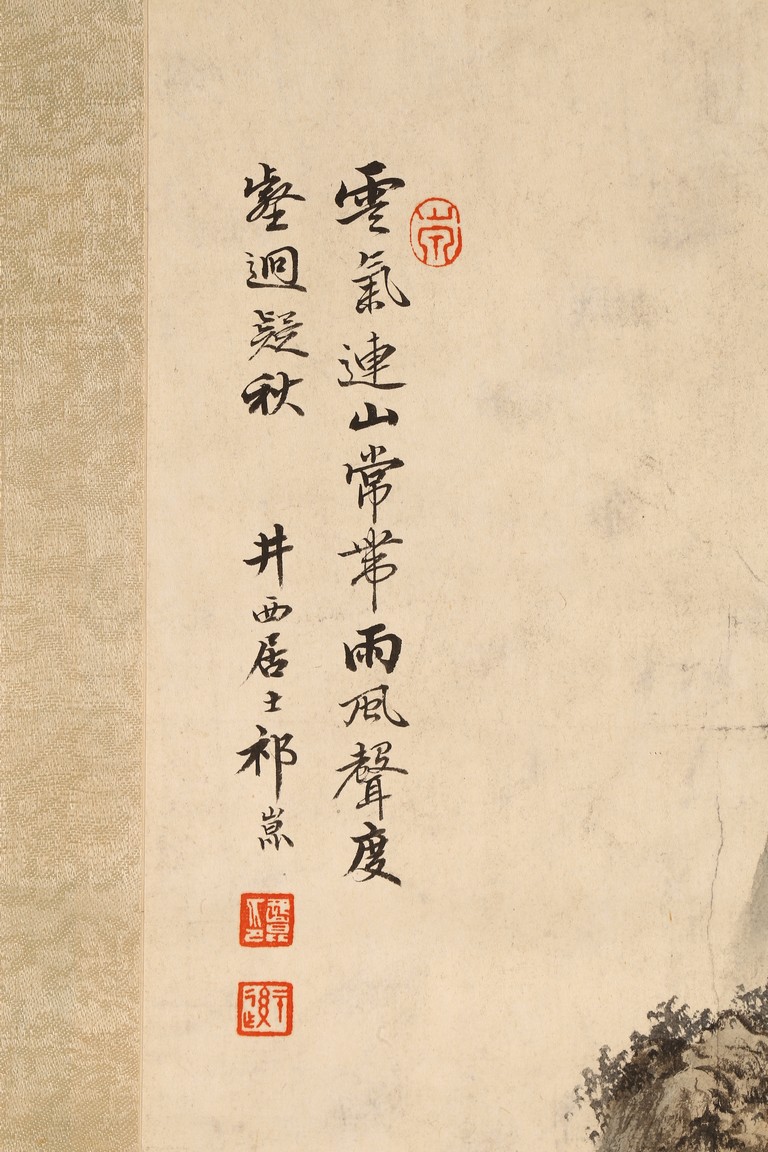 雲氣連山常帶雨風聲度
壑逈疑秋 井西居士祁崑